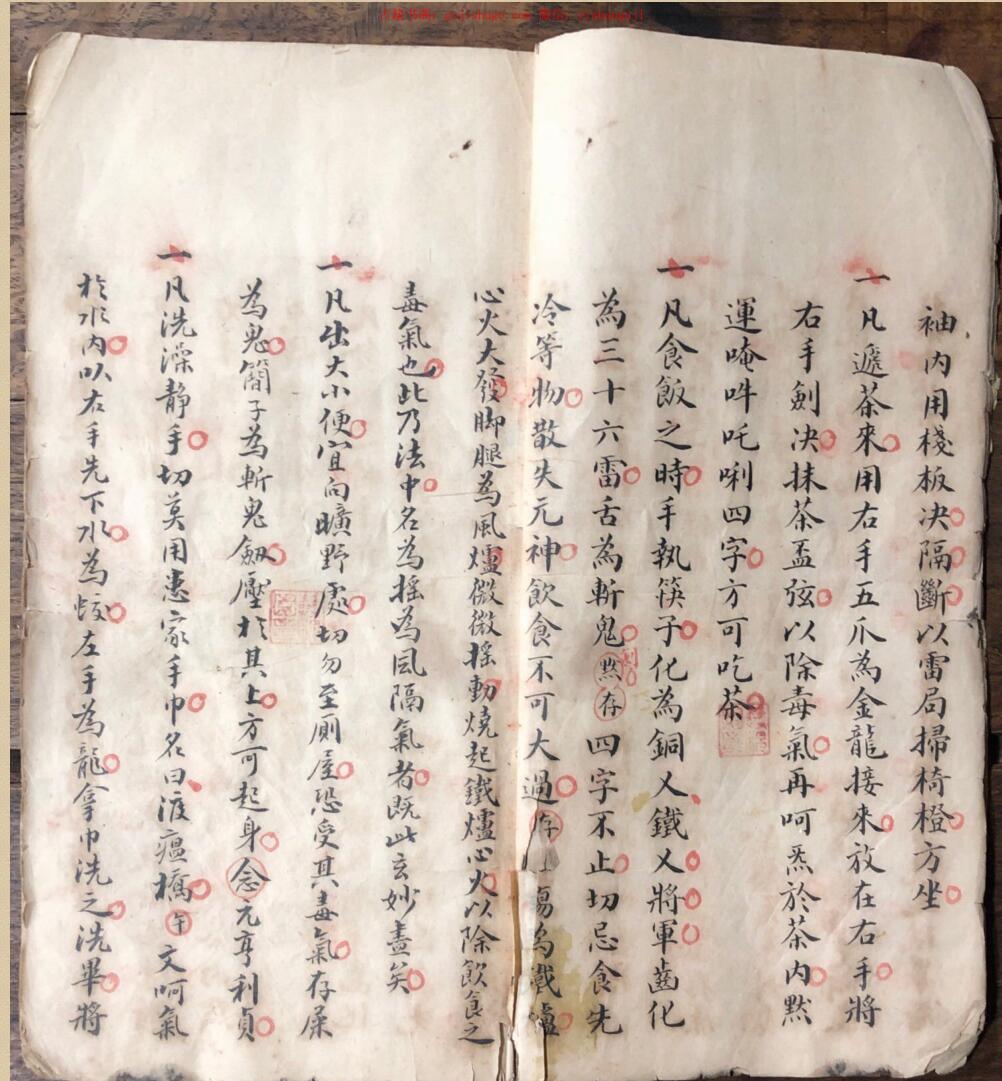 袖內用棧板决隔斷以雷局掃椅橙方坐
一凡遞茶來用右手五爪為金龍接來放在右手將
右手劍决抹茶盃弦以除毒氣再呵炁於茶內黙
運唵吽吒唎四字方可吃茶
一凡食飯之時手執筷子化為銅乂鐵乂將軍齒化
為三十六雷舌為斬鬼 黙存四字不止切忌食先
冷等物散失元神飲食不可大過存 傷為鐵爐
心火大發脚腿為風爐微微摇動燒起鐵爐心火以除飲食之
毒氣也此乃法中名為摇為風隔氣者既此玄妙盡矣
一凡出大小便宜向曠野處切勿至厠屋恐受其毒氣存屎
為鬼簡子為斬鬼劔壓於其上方可起身念元亨利貞
一凡洗澡静手切莫用患家手巾名曰渡瘟橋 文呵氣
於水內以右手先下水為蛟左手為龍拿巾洗之洗畢將